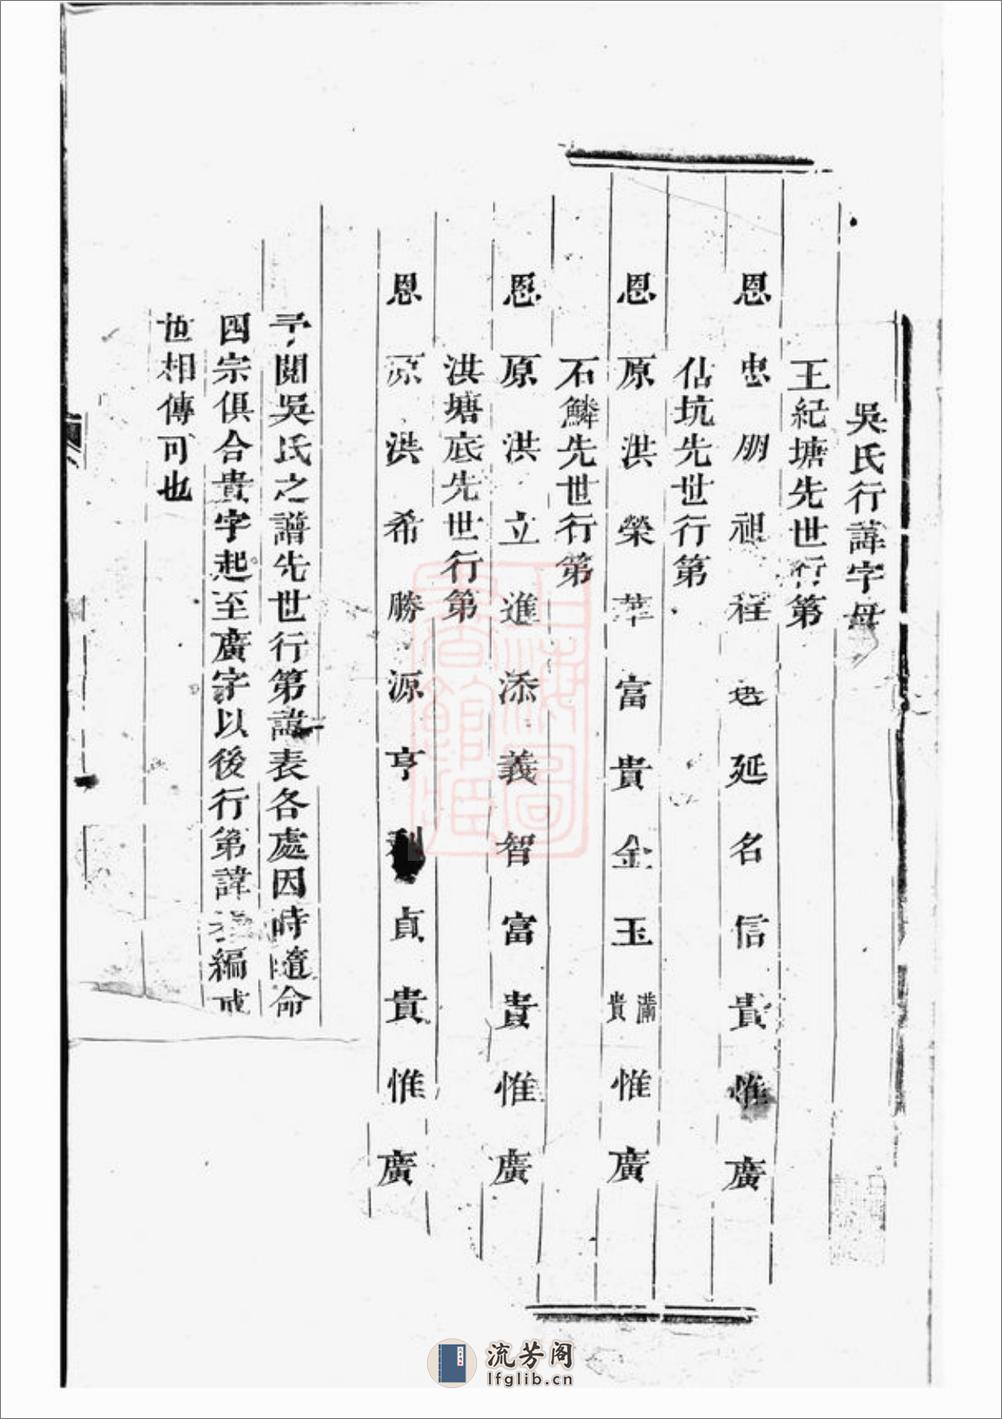 吳氏行諱字母
王紀塘先世行第
恩忠朋祖程达延名信貴惟廣
佔坑先世行第
恩原洪榮華富貴金玉滿貴惟廣
石鱗先世行第
恩原洪立進添義智富貴惟廣
洪塘底先世行第
恩原洪希勝源亨利貞貴惟廣
予閱吳氏之譜先世行第諱表各處因時隨命
四宗俱合貴字起至廣字以後行第諱編成
世相傳可也
上海圖書館藏
流芳阁
lfglib.cn